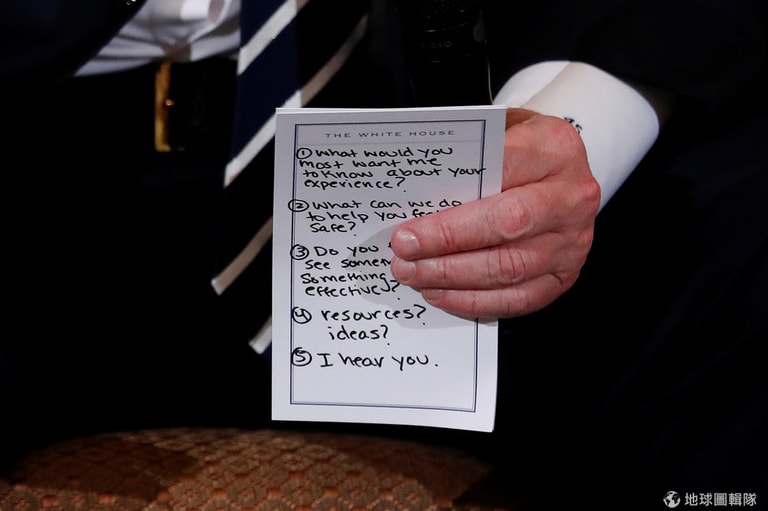 THE WHITE HOUSE
① What would you
most want me
to know about your
experience?
② What can we do
to help you
safe?
③ Do you
see
something
effective?
④ resources?
ideas?
⑤ I hear you.
地球圖輯隊